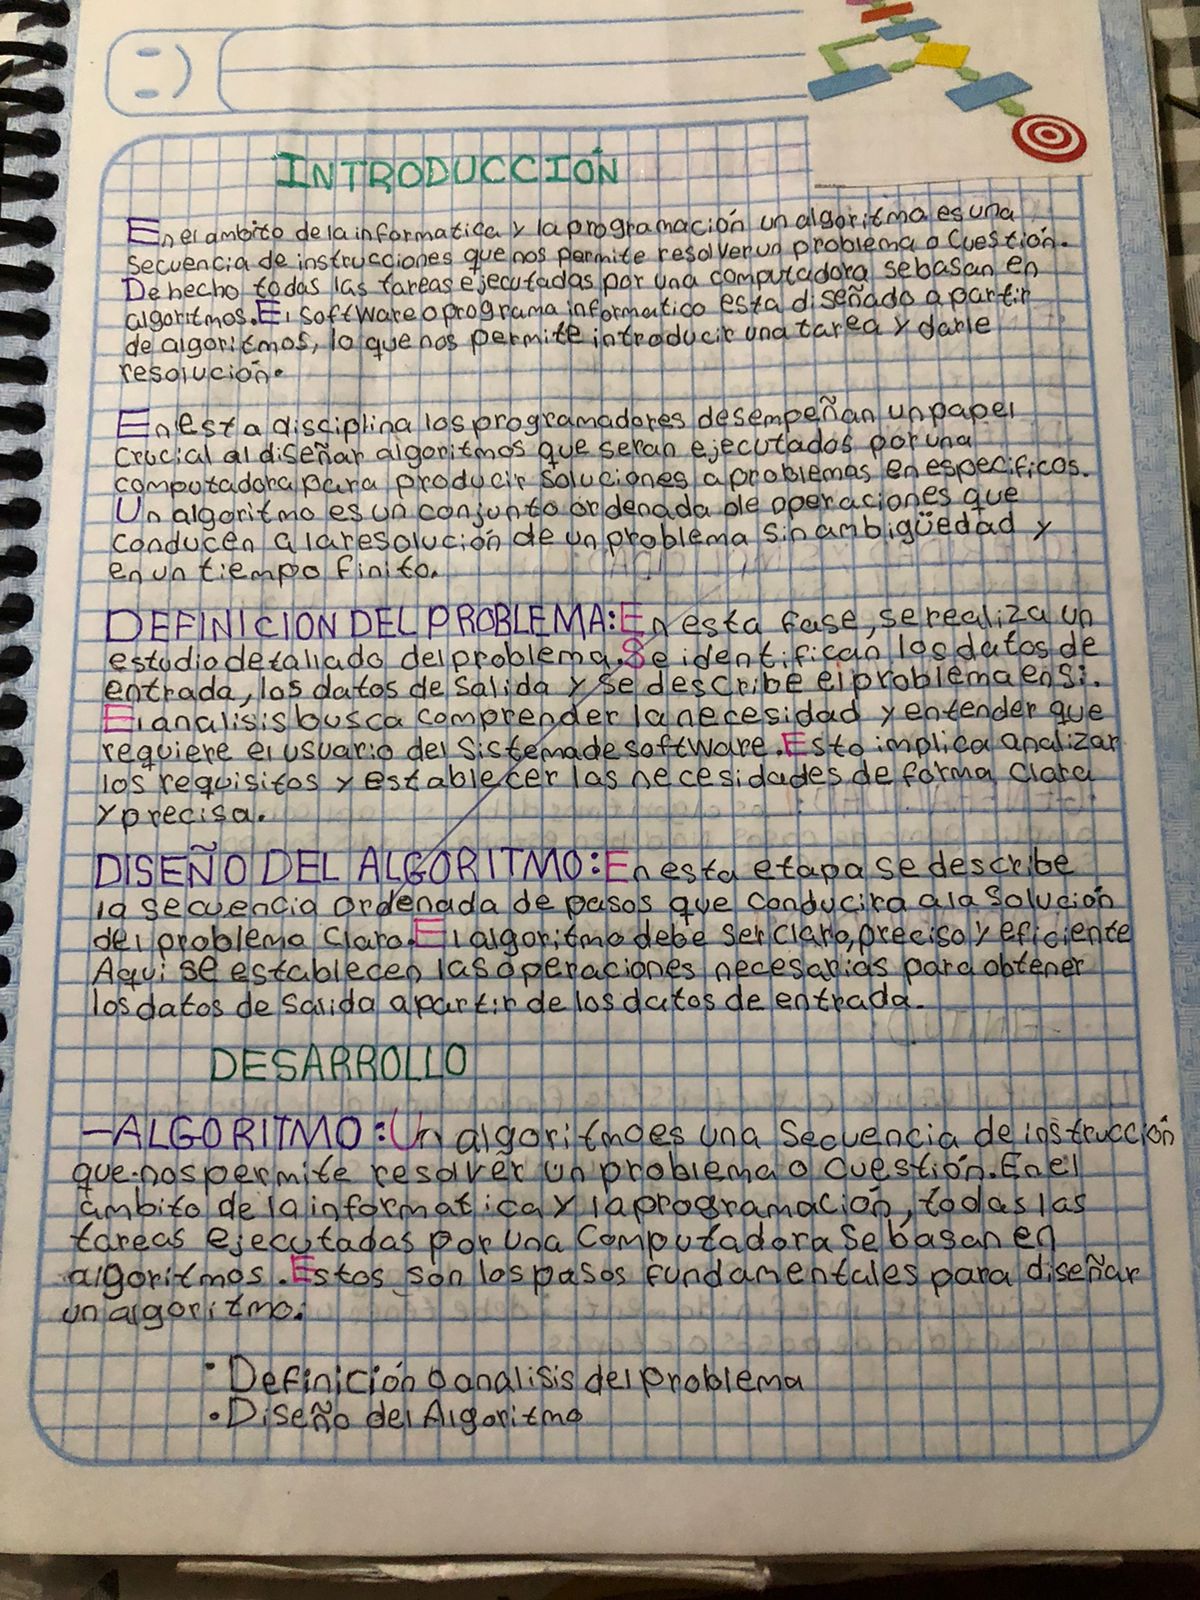 INTRODUCCIÓN
En el ambito de la informatica y la programación un algoritmo es una
secuencia de instrucciones que nos permite resolver un problema o cuestión.
De hecho todas las tareas ejecutadas por una computadora se basan en
algoritmos. El software o programa informatico esta diseñado a partir
de algoritmos, lo que nos permite introducir una tarea y darle
resolución.
En esta disciplina los programadores desempeñan un papel
crucial al diseñar algoritmos que seran ejecutados por una
computadora para producir soluciones a problemas en especificos.
Un algoritmo es un conjunto ordenada de operaciones que
conducen a la resolución de un problema sin ambigüedad y
en un tiempo finito.
DEFINICION DEL PROBLEMA: En esta fase, se realiza un
estudio detallado del problema. Se identifican los datos de
entrada, los datos de salida y se describe el problema en si.
El analisis busca comprender la necesidad y entender que
requiere el usuario del sistema de software. Esto implica analizar
los requisitos y establecer las necesidades de forma clara
y precisa.
DISEÑO DEL ALGORITMO: En esta etapa se describe
la secuencia ordenada de pasos que conducira a la solución
del problema claro. El algoritmo debe ser claro, preciso y eficiente
Aqui se establecen las operaciones necesarias para obtener
los datos de salida a partir de los datos de entrada.
DESARROLLO
-ALGORITMO: Un algoritmo es una secuencia de instrucción
que nos permite resolver un problema o cuestión. En el
ámbito de la informatica y la programación, todas las
tareas ejecutadas por una computadora se basan en
algoritmos. Estos son los pasos fundamentales para diseñar
un algoritmo:
• Definición o analisis del problema
• Diseño del Algoritmo